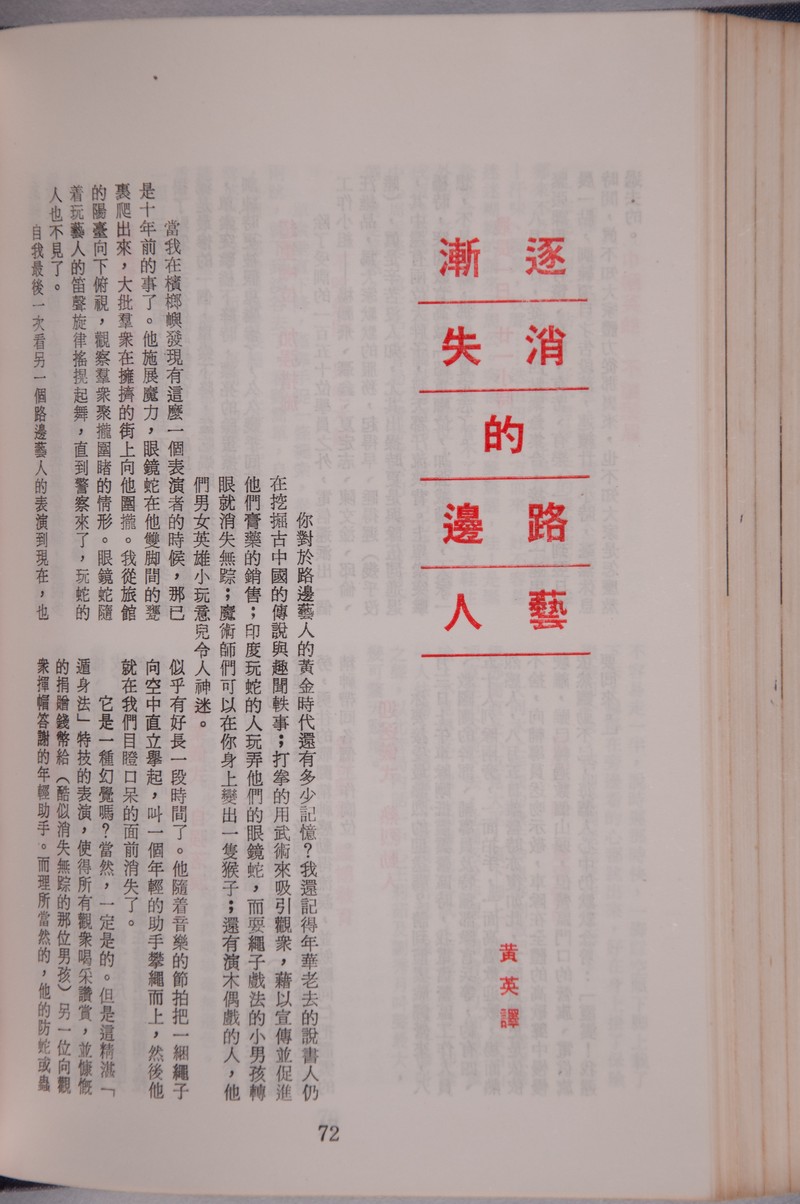 逐漸
消失
的
路邊
藝人
黃英譯
你對於路邊藝人的黃金時代還有多少記憶?我還記得年華老去的說書人仍
在挖掘古中國的傳說與趣聞軼事;打拳的用武術來吸引觀衆,藉以宣傳並促進
他們膏藥的銷售;印度玩蛇的人玩弄他們的眼鏡蛇,而耍繩子戲法的小男孩轉
眼就消失無踪;魔術師們可以在你身上變出一隻猴子;還有演木偶戲的人,他
們男女英雄小玩意兒令人神迷。
當我在檳榔嶼發現有這麼一個表演者的時候,那已
是十年前的事了。他施展魔力,眼鏡蛇在他雙脚間的甕
裏爬出來,大批羣衆在擁擠的街上向他團攏。我從旅館
的陽臺向下俯視,觀察羣衆聚攏圍睹的情形。眼鏡蛇隨
着玩藝人的笛聲旋律搖擺起舞,直到警察來了,玩蛇的
人也不見了。
自我最後一次看另一個路邊藝人的表演到現在,也
似乎有好長一段時間了。他隨着音樂的節拍把一綑繩子
向空中直立擧起,叫一個年輕的助手攀繩而上,然後他
就在我們目瞪口呆的面前消失了。
它是一種幻覺嗎?當然,一定是的。但是這精湛「
遁身法」特技的表演,使得所有觀衆喝采讚賞,並慷慨
的捐贈錢幣給(酷似消失無踪的那位男孩)另一位向觀
衆揮帽答謝的年輕助手。而理所當然的,他的防蛇或蟲
72